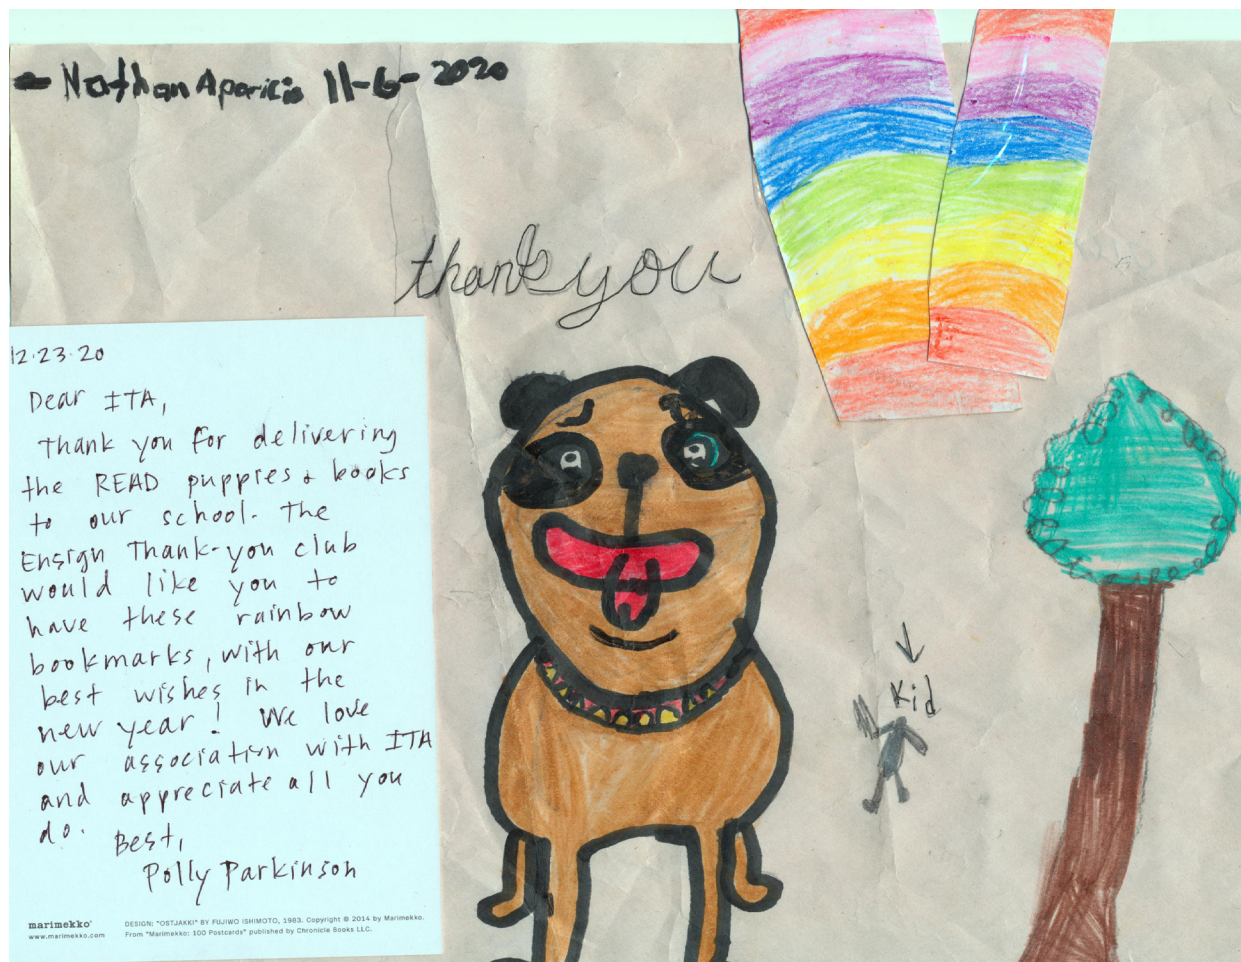 - Nathan Aparicio 11-6-2020
thank you
12.23.20
Dear ITA,
Thank you for delivering
the READ puppies & books
to our school. The
Ensign Thank-you club
would like you to
have these rainbow
bookmarks, with our
best wishes in the
new year! We love
our association with ITA
and appreciate all you
do.
Best,
Polly Parkinson
marimekko®
www.marimekko.com
DESIGN: "OSTJAKKI" BY FUJIWO ISHIMOTO, 1983. Copyright © 2014 by Marimekko.
From "Marimekko: 100 Postcards" published by Chronicle Books LLC.
Kid